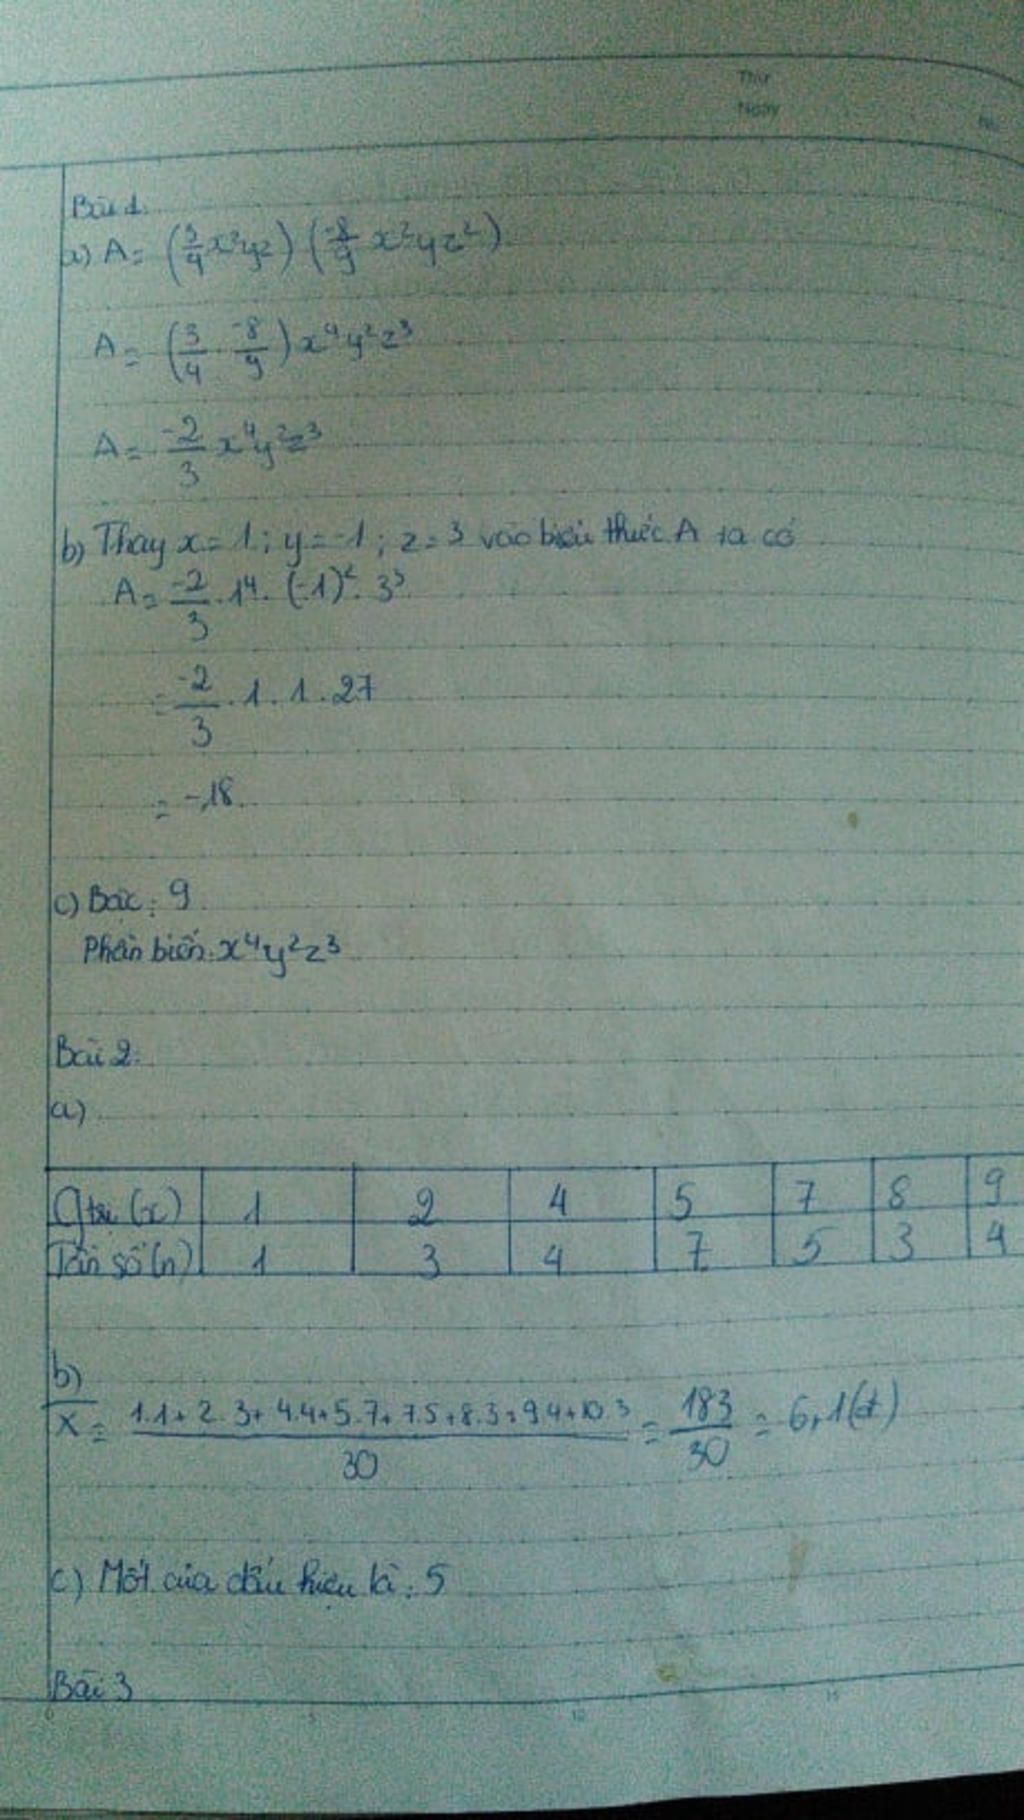 Thứ
Ngày
No.
Bài 1.
a) A = (3/4 x²yz) (-8/9 x²yz²)
A = (3/4 . -8/9) x⁴y²z³
A = -2/3 x⁴y²z³
b) Thay x = 1; y = -1; z = 3 vào biểu thức A ta có
A = -2/3 . 1⁴ . (-1)² . 3³
= -2/3 . 1 . 1 . 27
= -18.
c) Bậc: 9
Phần biến: x⁴y²z³
Bài 2.
a)
Gtrị (x) 1 2 4 5 7 8 9
Tần số (n) 1 3 4 7 5 3 4
b)
X̄ = (1.1+2.3+4.4+5.7+7.5+8.3+9.4+10.3)/30 = 183/30 = 6,1(đ)
c) Mốt của dấu hiệu là: 5
Bài 3
0 5 10 15